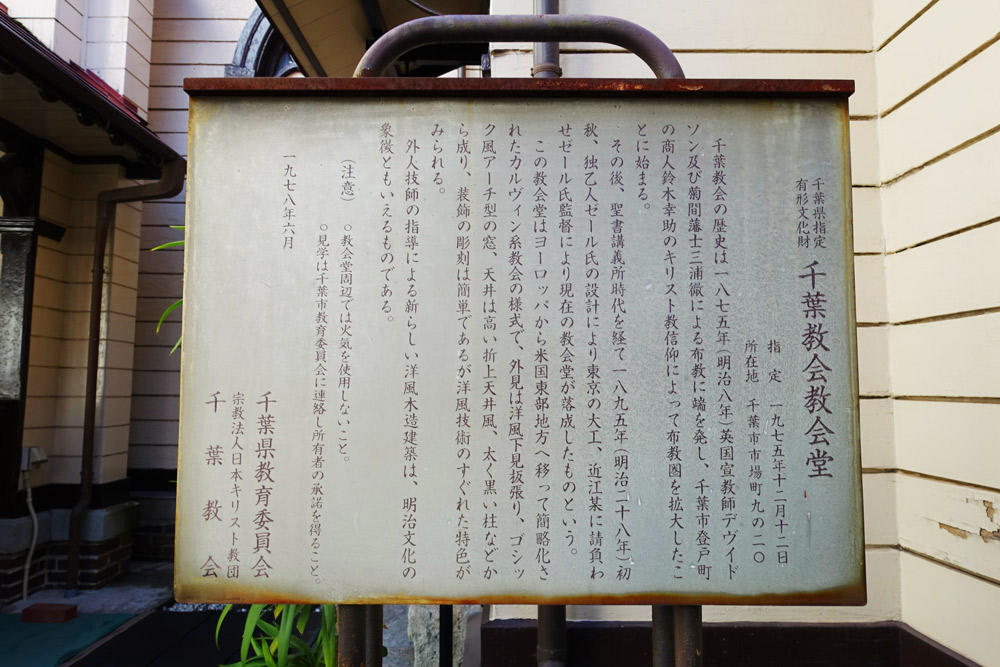 千葉県指定
有形文化財
千葉教会教会堂
指定 一九七五年十二月十二日
所在地 千葉市市場町九の二〇
千葉教会の歴史は一八七五年(明治八年)英国宣教師デヴイド
ソン及び菊間藩士三浦徹による布教に端を発し、千葉市登戸町
の商人鈴木幸助のキリスト教信仰によって布教圏を拡大したこ
とに始まる。
その後、聖書講義所時代を経て一八九五年(明治二十八年)初
秋、独乙人ゼール氏の設計により東京の大工、近江某に請負わ
せゼール氏監督により現在の教会堂が落成したものという。
この教会堂はヨーロッパから米国東部地方へ移って簡略化さ
れたカルヴィン系教会の様式で、外見は洋風下見板張り、ゴシッ
ク風アーチ型の窓、天井は高い折上天井風、太く黒い柱などか
ら成り、装飾の彫刻は簡単であるが洋風技術のすぐれた特色が
みられる。
外人技師の指導による新らしい洋風木造建築は、明治文化の
象徴ともいえるものである。
(注意) ○教会堂周辺では火気を使用しないこと。
○見学は千葉市教育委員会に連絡し所有者の承諾を得ること。
一九七八年六月
千葉県教育委員会
宗教法人日本キリスト教団
千葉教会